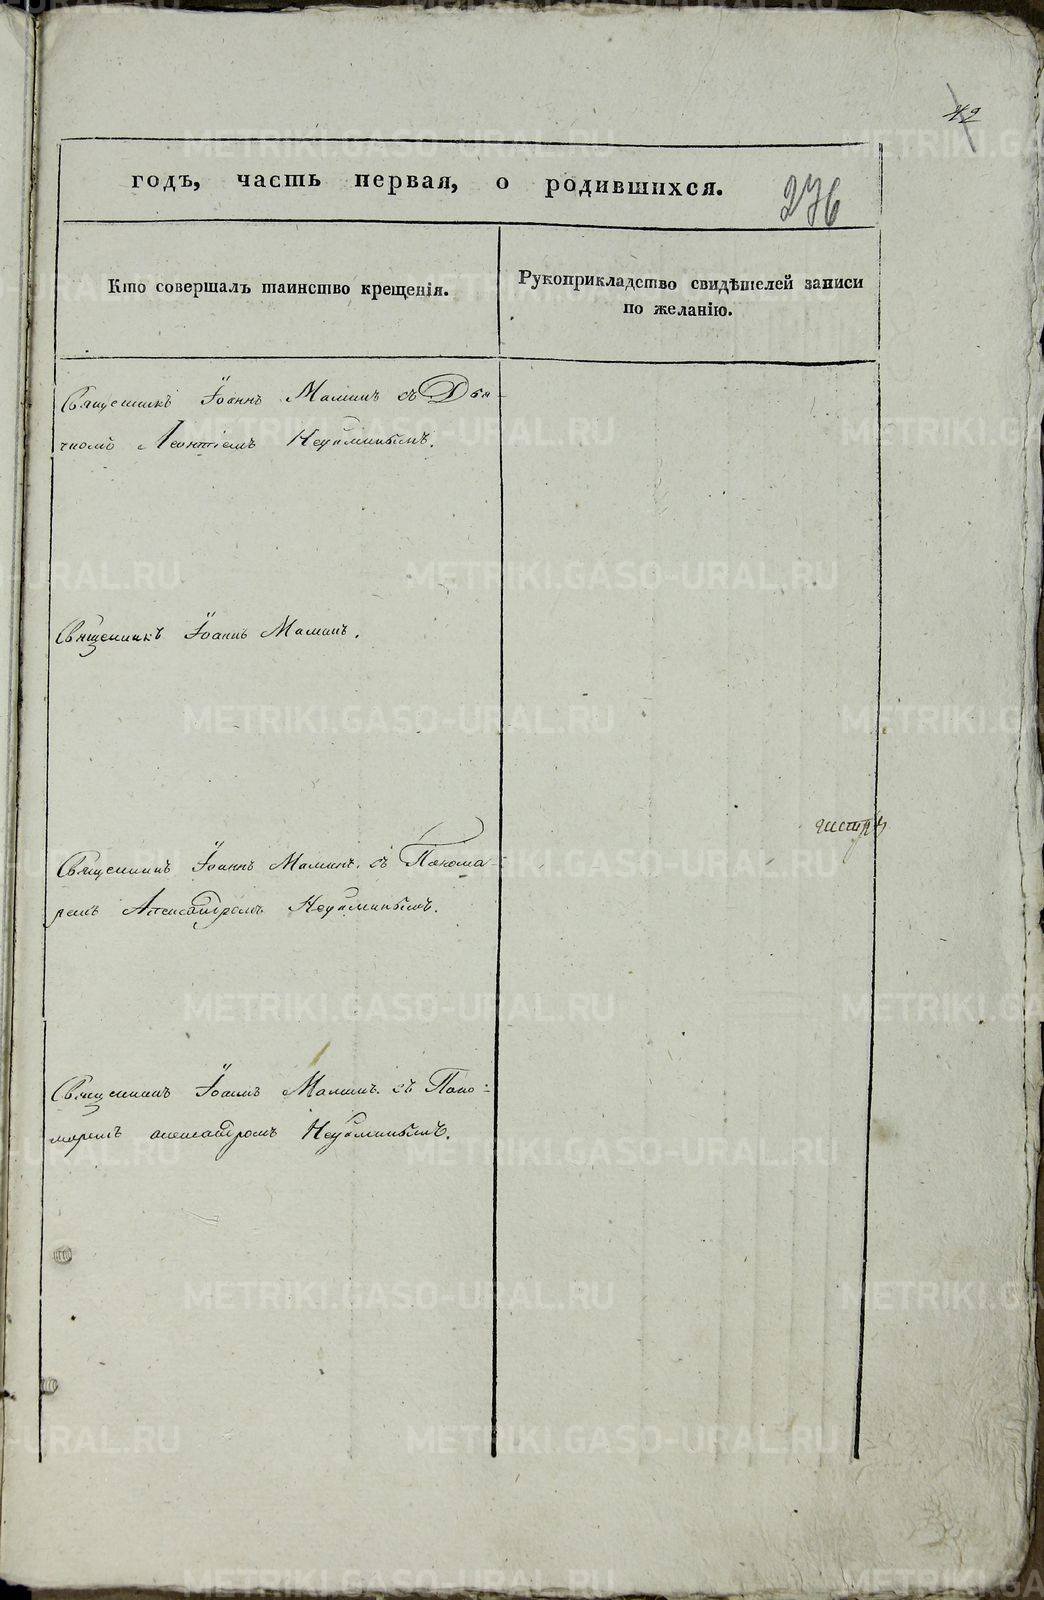 42
годъ, часть первая, о родившихся.
276
Кто совершалъ таинство крещенія.
Рукоприкладство свидѣтелей записи
по желанію.
Священникъ Іоаннъ Маминъ съ Дья-
Леонтіемъ Неуйминымъ.
Священникъ Іоаннъ Маминъ.
Священникъ Іоаннъ Маминъ. съ Понома-
ремъ Александромъ Неуйминымъ.
Священникъ Іоаннъ Маминъ. съ Поно-
маремъ александромъ Неуйминымъ.
METRIKI.GASO-URAL.RU